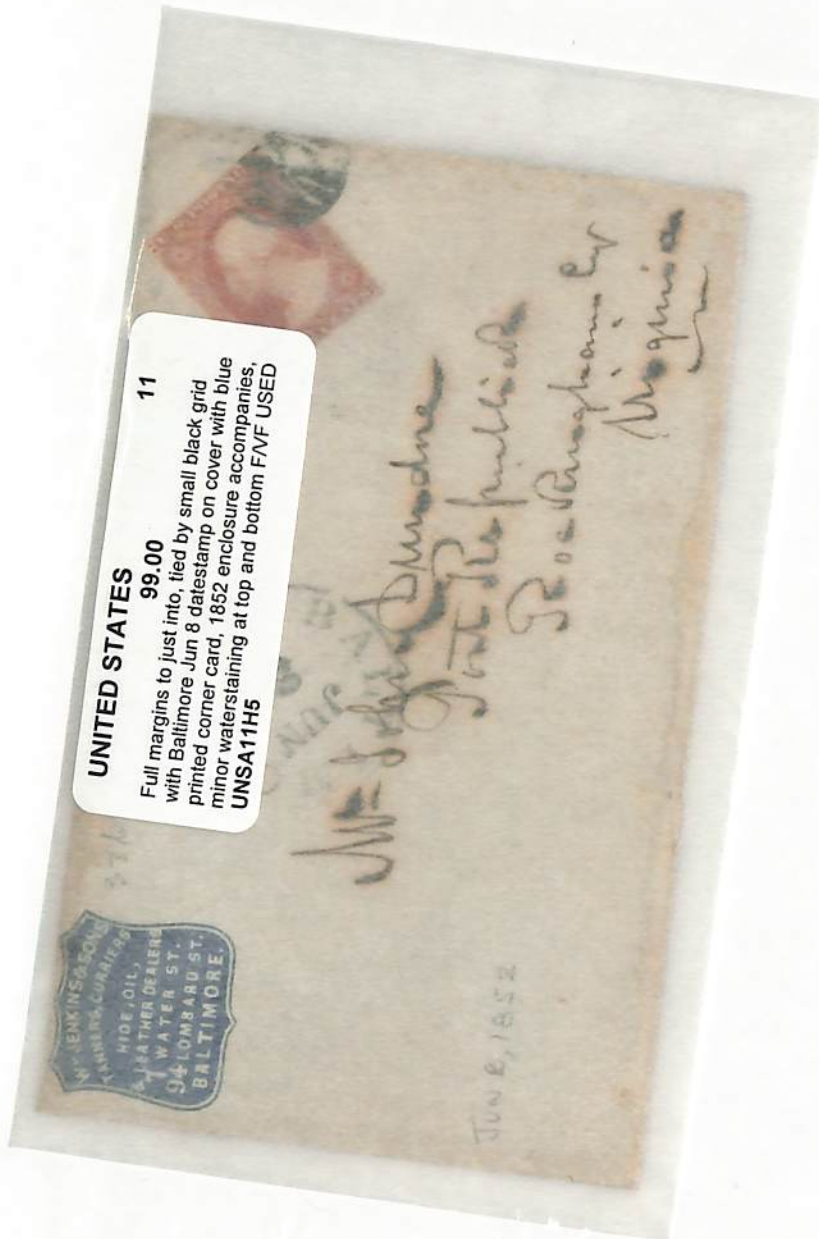 UNITED STATES 11
99.00
Full margins to just into, tied by small black grid
with Baltimore Jun 8 datestamp on cover with blue
printed corner card, 1852 enclosure accompanies,
minor waterstaining at top and bottom F/VF USED
UNSA11H5
Wm JENKINS & SONS
TANNERS, CURRIERS
HIDE, OIL,
& LEATHER DEALERS
WATER ST.
94 LOMBARD ST.
BALTIMORE.
JUN
8
Mr John
Port Republick
Rockingham Cy
Virginia
JUN 8, 1852